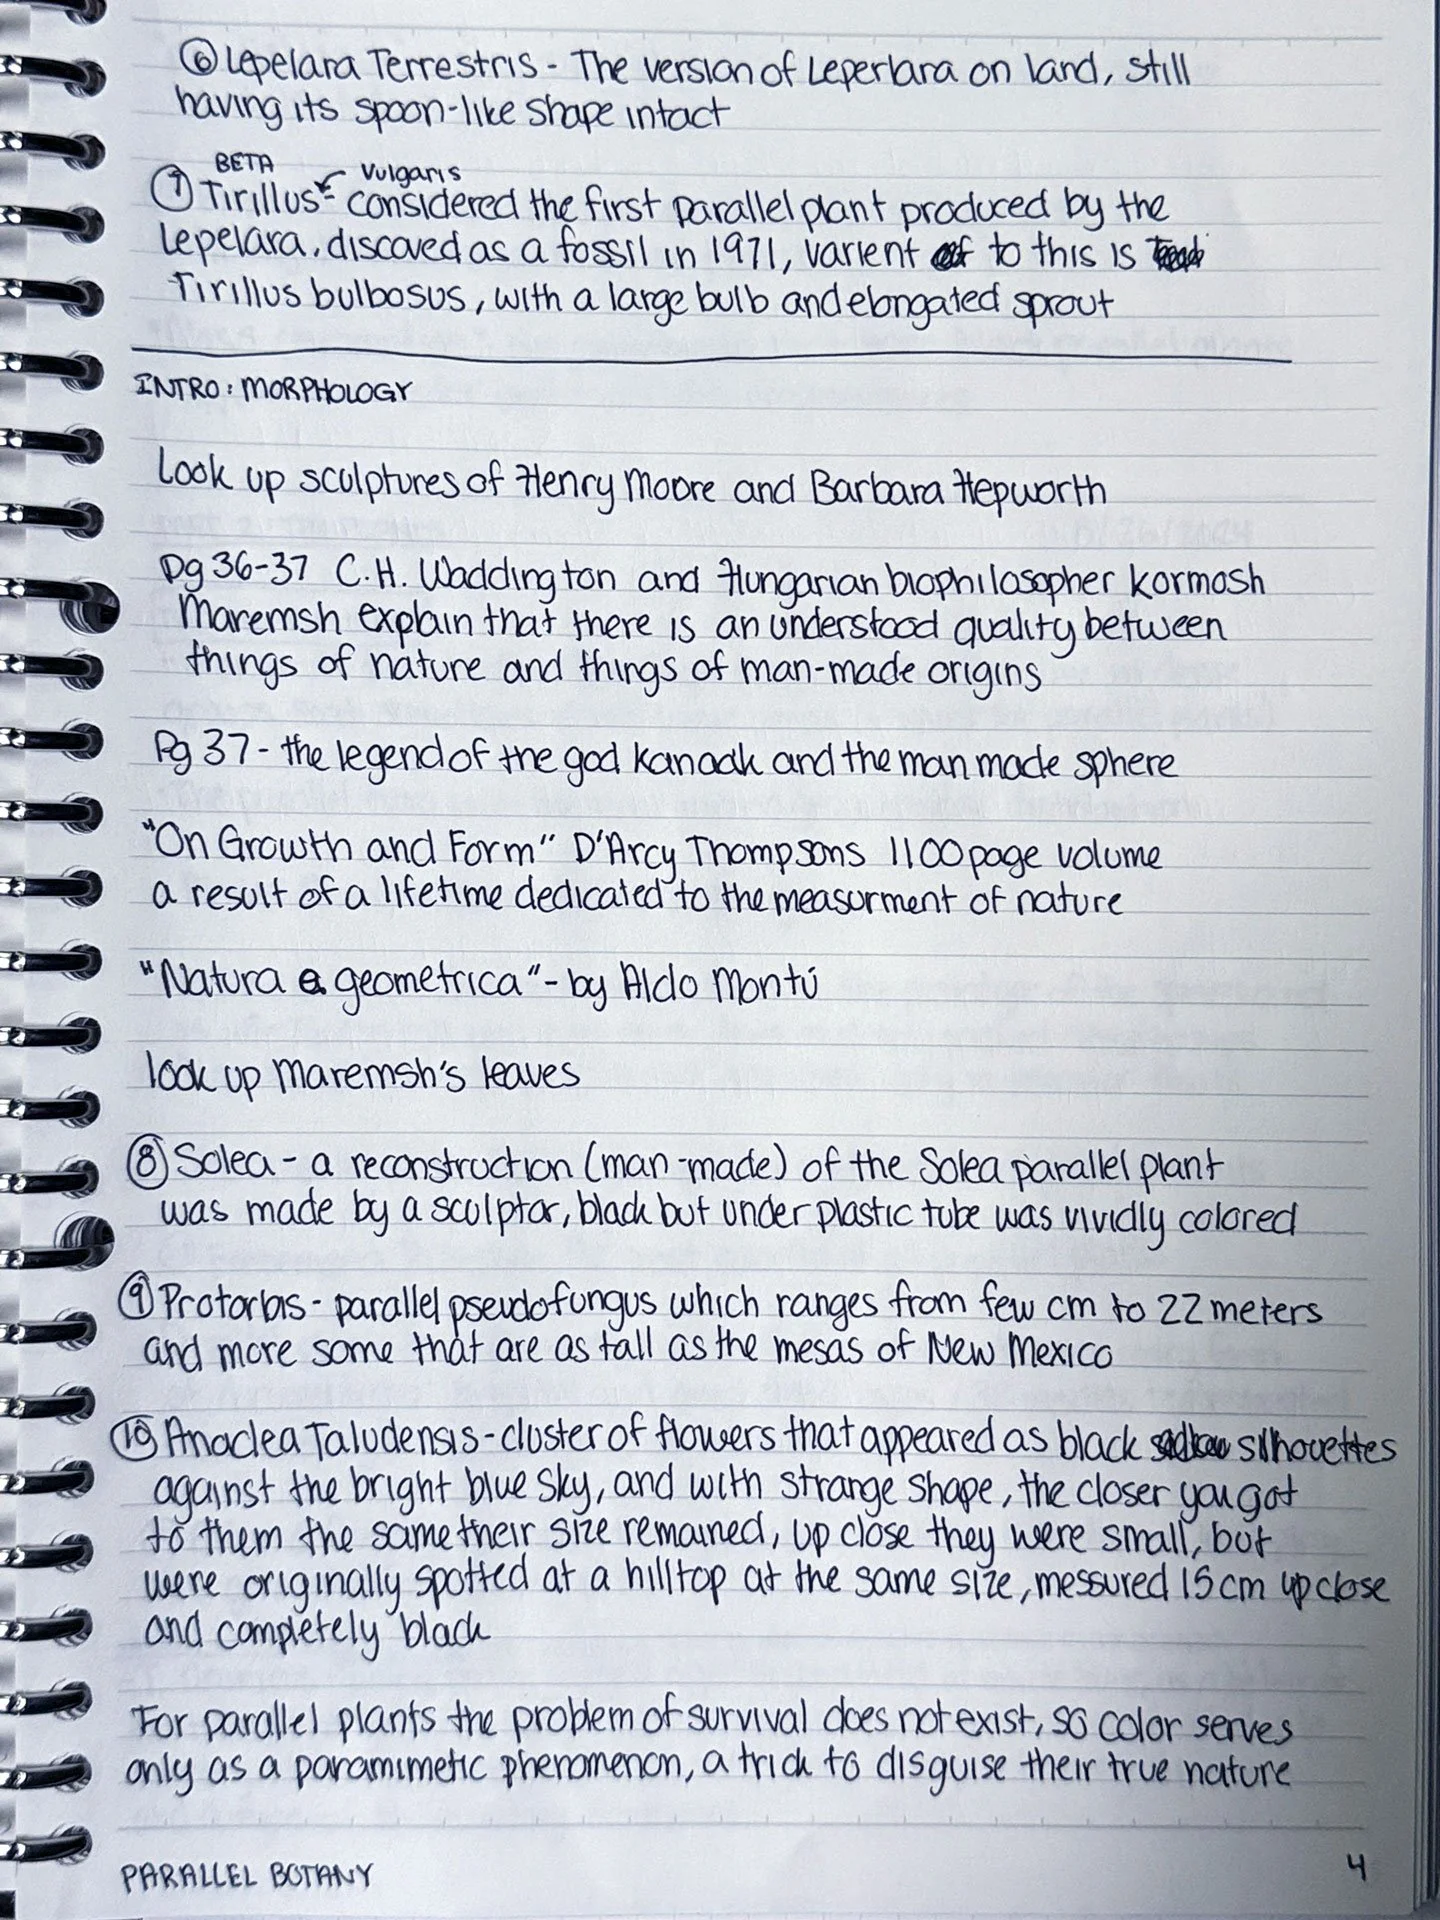 ⑥ Lepelara Terrestris - The version of Leperlara on land, still
having its spoon-like shape intact
BETA Vulgaris
⑦ Tirillus - considered the first parallel plant produced by the
Lepelara, discoved as a fossil in 1971, varient to this is
Tirillus bulbosus, with a large bulb and elongated sprout
INTRO: MORPHOLOGY
Look up sculptures of Henry Moore and Barbara Hepworth
Pg 36-37 C.H. Waddington and Hungarian biophilosopher Kormosh
Maremsh explain that there is an understood quality between
things of nature and things of man-made origins
Pg 37 - the legend of the god Kanaak and the man made sphere
"On Growth and Form" D'Arcy Thompsons 1100 page volume
a result of a lifetime dedicated to the measurment of nature
"Natura e geometrica" - by Aldo Montú
look up Maremsh's leaves
⑧ Solea - a reconstruction (man-made) of the Solea parallel plant
was made by a sculptor, black but under plastic tube was vividly colored
⑨ Protorbis - parallel pseudofungus which ranges from few cm to 22 meters
and more some that are as tall as the mesas of New Mexico
⑩ Anaclea Taludensis - cluster of flowers that appeared as black silhouettes
against the bright blue sky, and with strange shape, the closer you got
to them the same their size remained, up close they were small, but
were originally spotted at a hilltop at the same size, messured 15cm up close
and completely black
For parallel plants the problem of survival does not exist, so color serves
only as a paramimetic phenomenon, a trick to disguise their true nature
PARALLEL BOTANY 4